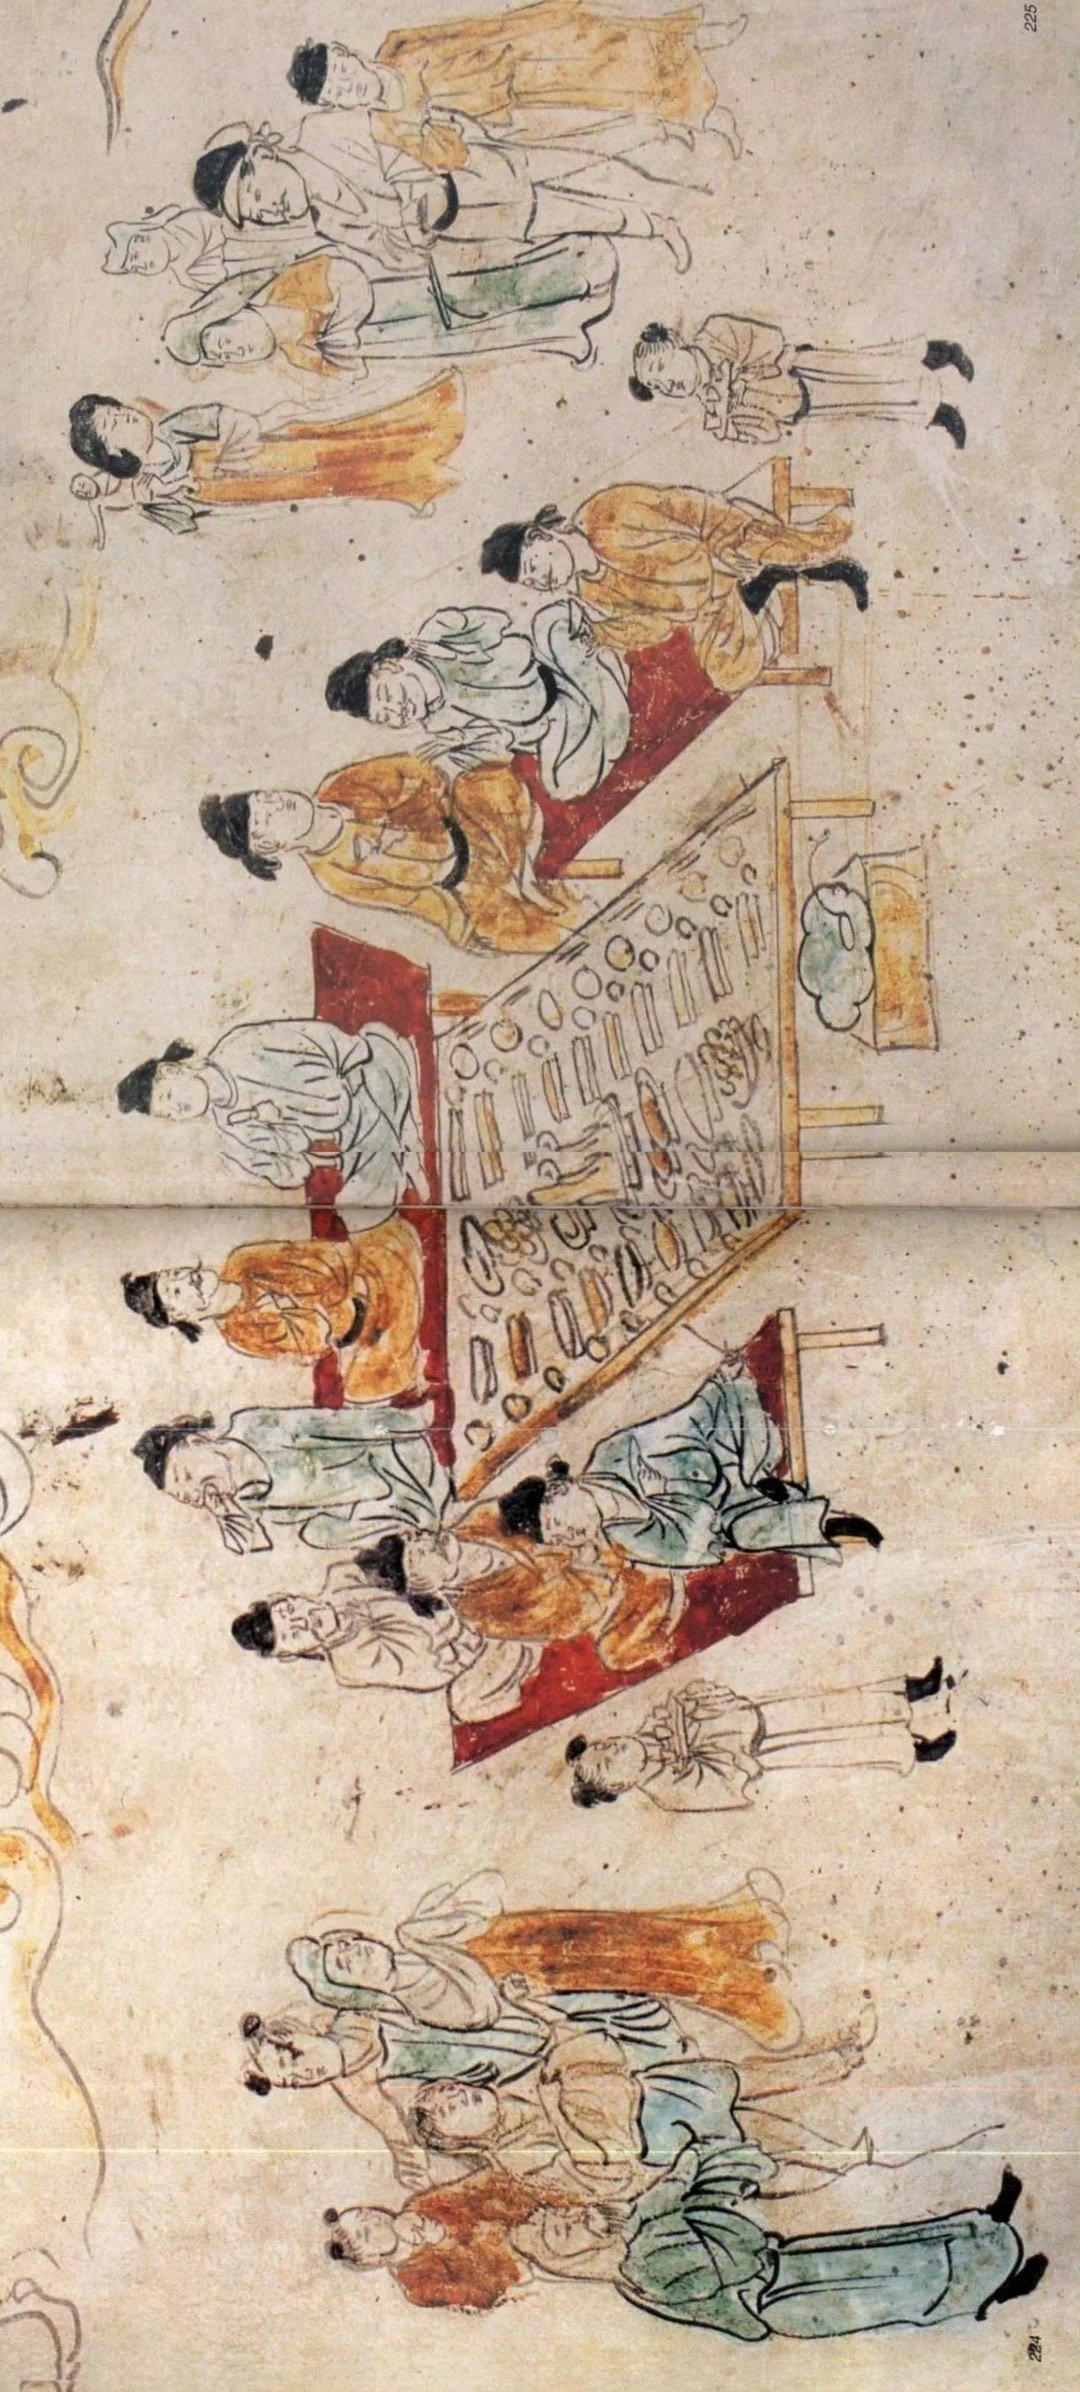 224
225